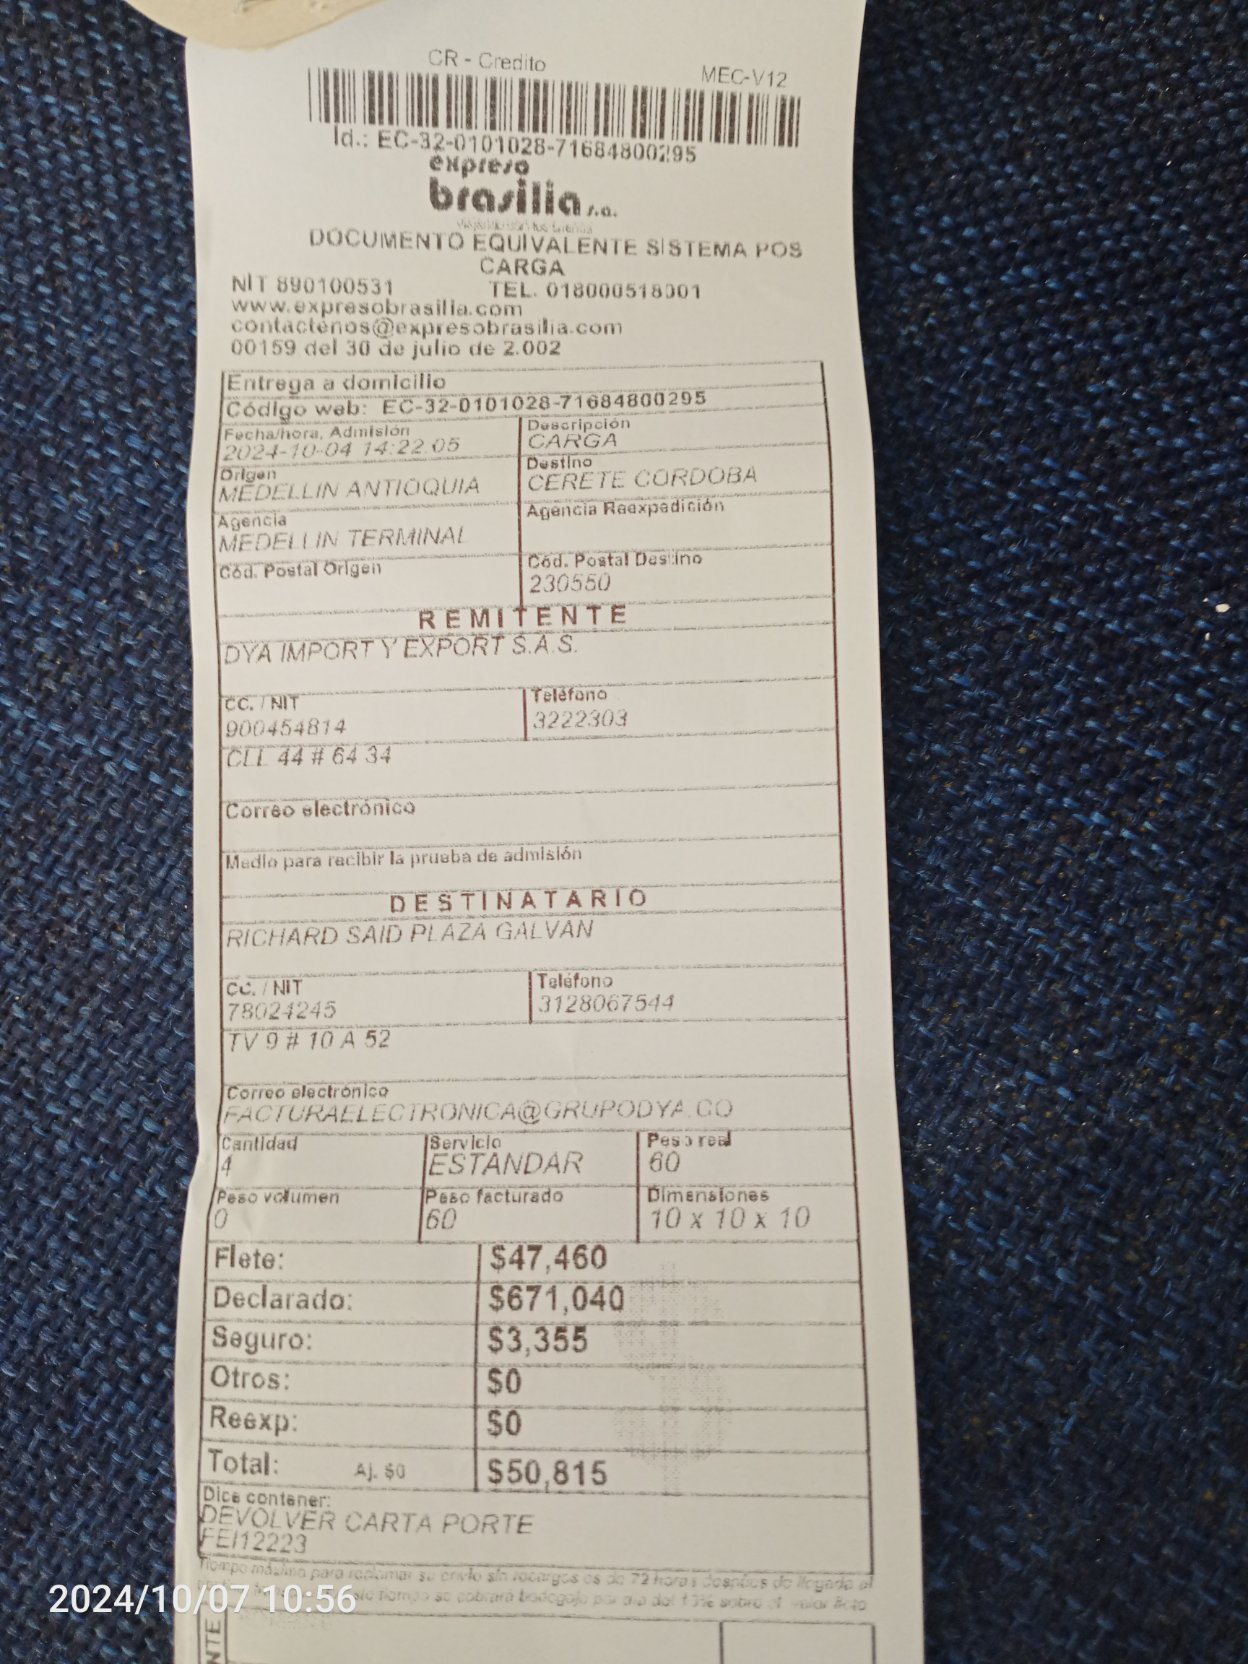 CR - Credito
MEC-V12
Id.: EC-32-0101028-71684800295
expreso
brasilia s.a.
DOCUMENTO EQUIVALENTE SISTEMA POS
CARGA
NIT 890100531 TEL. 018000518001
www.expresobrasilia.com
contactenos@expresobrasilia.com
00159 del 30 de julio de 2.002
Entrega a domicilio
Código web: EC-32-0101028-71684800295
Fecha/hora, Admisión Descripción
2024-10-04 14:22:05 CARGA
Origen Destino
MEDELLIN ANTIOQUIA CERETE CORDOBA
Agencia Agencia Reexpedición
MEDELLIN TERMINAL
Cód. Postal Origen Cód. Postal Destino
230550
REMITENTE
DYA IMPORT Y EXPORT S.A.S.
CC. / NIT Teléfono
900454814 3222303
CLL 44 # 64 34
Correo electrónico
Medio para recibir la prueba de admisión
DESTINATARIO
RICHARD SAID PLAZA GALVAN
CC. / NIT Teléfono
78024245 3128067544
TV 9 # 10 A 52
Correo electrónico
FACTURAELECTRONICA@GRUPODYA.CO
Cantidad Servicio Peso real
4 ESTANDAR 60
Peso volumen Peso facturado Dimensiones
0 60 10 x 10 x 10
Flete: $47,460
Declarado: $671,040
Seguro: $3,355
Otros: $0
Reexp: $0
Total: Aj. $0 $50,815
Dice contener:
DEVOLVER CARTA PORTE
FEI12223
Tiempo máximo para reclamar su envío sin recargos es de 72 horas después de llegada al
tiempo se cobrará bodegaje por día del
2024/10/07 10:56
NTE